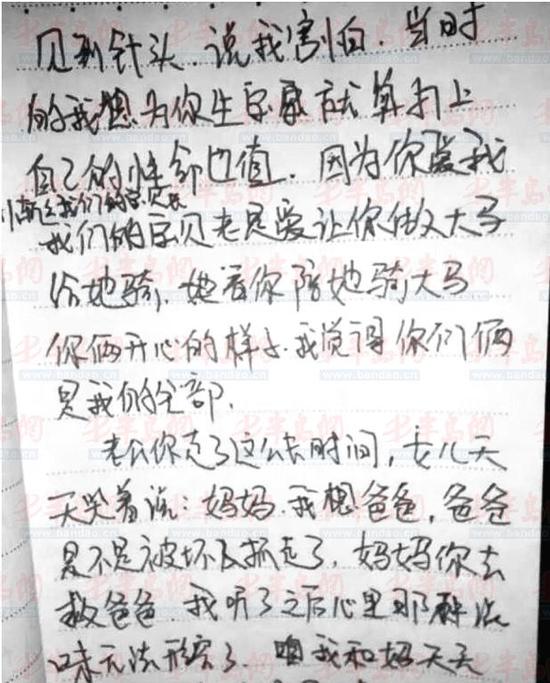 见到针头，说我害怕．当时
的我想为你生宝宝就算打上
自己的性命也值．因为你爱我
我们的宝贝老是爱让你做大马
给她骑，她看你陪她骑大马
你俩开心的样子．我觉得你们俩
是我的全部．
老公你走了这么长时间，女儿天
天哭着说：妈妈．我想爸爸，爸爸
是不是被坏人抓走了．妈妈你去
救爸爸．我听了之后心里那种滋
味无法形容了．咱我和妈天天
半岛网
www.bandao.cn